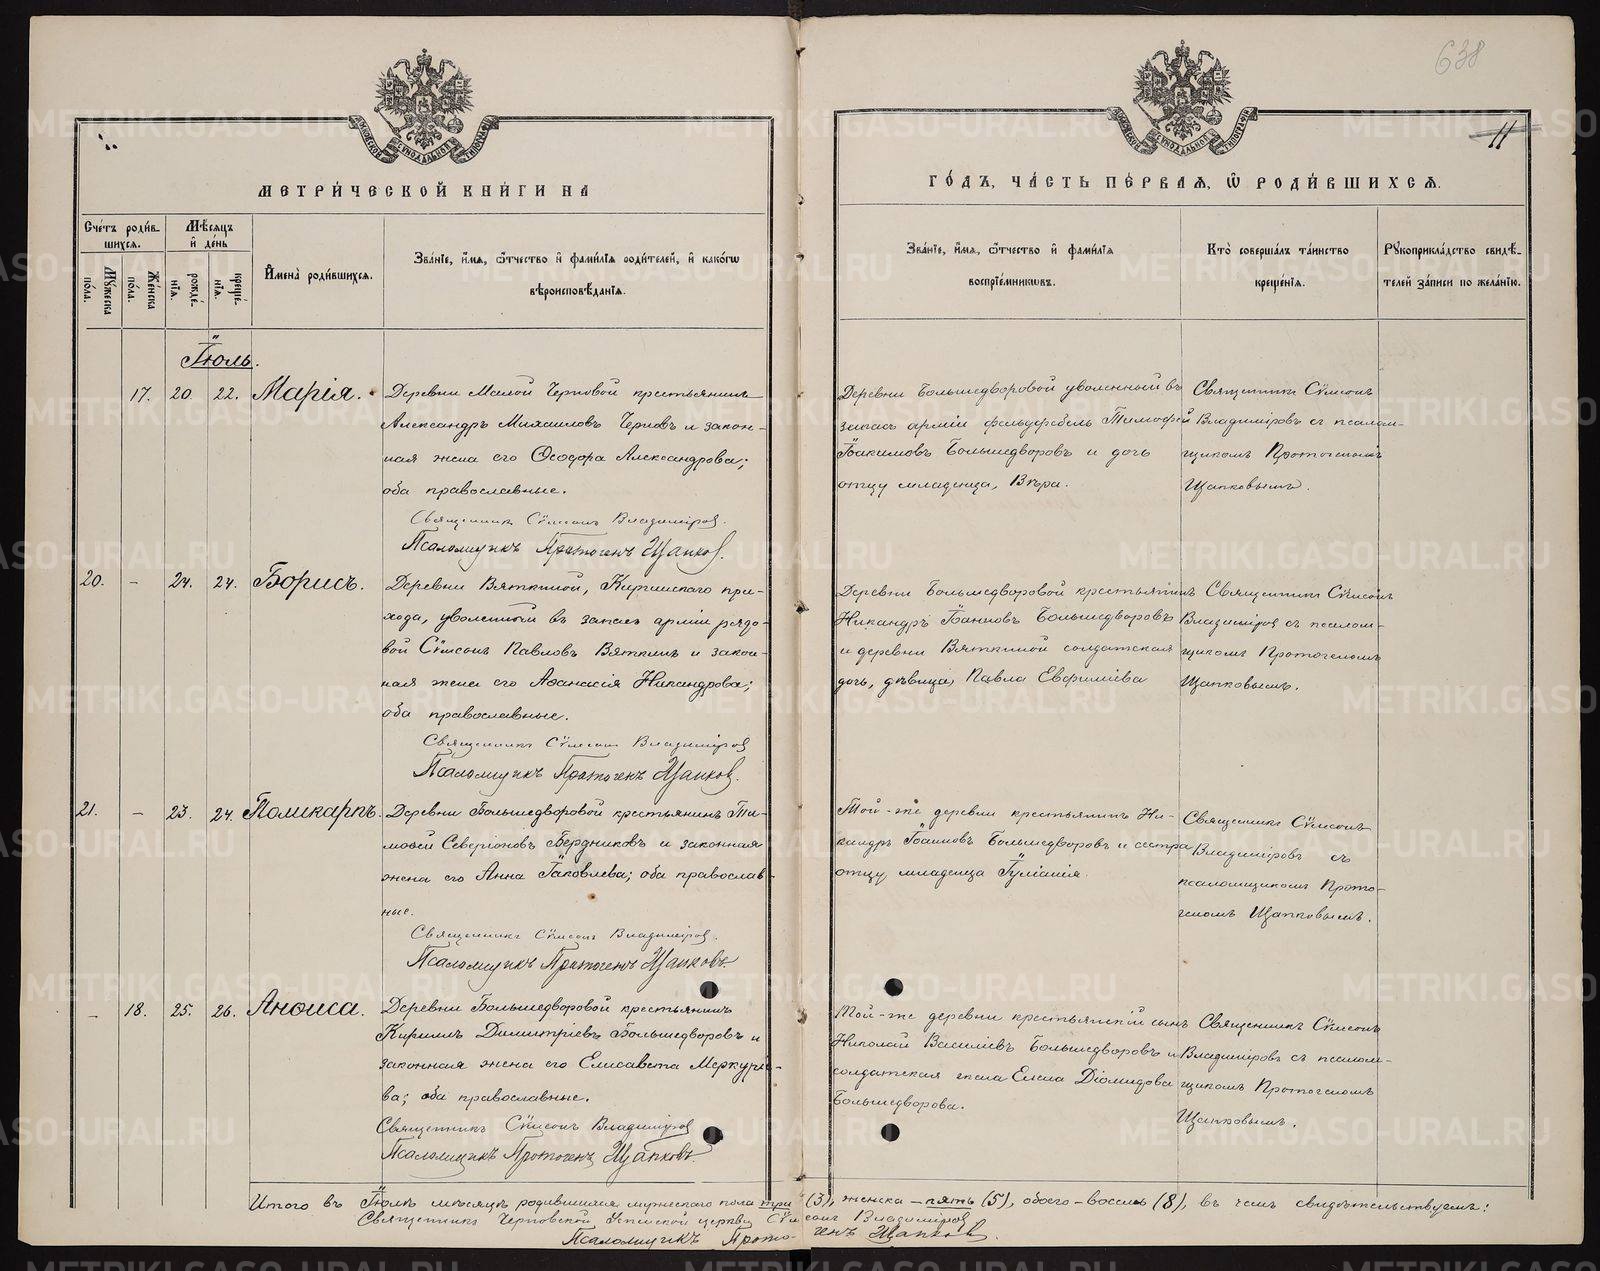 638
11
МОСКОВСКОЙ СѴНОДАЛЬНОЙ ТИПОГРАФІИ
МОСКОВСКОЙ СѴНОДАЛЬНОЙ ТИПОГРАФІИ
МЕТРИ́ЧЕСКОЙ КНИ́ГИ НА
ГО́ДЪ, ЧА́СТЬ ПЕ́РВАѦ, Ѽ РОДИ́ВШИХСѦ.
Сче́тъ роди́в-
шихсѧ.
Мѣ́сѧцъ
и҆ де́нь
Мꙋ́жеска
по́ла.
Же́нска
по́ла.
рожде́-
нїѧ.
креще́-
нїѧ.
И҆мена̀ роди́вшихсѧ.
Зва́нїе, и҆́мѧ, ѻ҆́тчество и҆ фами́лїѧ роди́телей, и҆ како́гѡ
вѣроисповѣ́данїѧ.
Зва́нїе, и҆́мѧ, ѻ҆́тчество и҆ фами́лїѧ
воспрїе́мникѡвъ.
Кто̀ соверша́лъ та́инство
креще́нїѧ.
Рꙋкоприкла́дство свидѣ́-
телей за́писи по жела́нїю.
Іюль.
17. 20 22. Марія.
Деревни Малой Черновой крестьянинъ
Александръ Михаиловъ Черновъ и закон-
ная жена его Ѳеодора Александрова;
оба православные.
Священникъ Сѵмеонъ Владиміровъ.
Псаломщикъ Протогенъ Щапковъ.
Деревни Большедворовой уволенный въ
запасъ арміи фельдфебель Тимофей
Іоакимовъ Большедворовъ и дочь
отцу младенца, Вѣра.
Священникъ Сѵмеонъ
Владиміровъ съ псалом-
щикомъ Протогеномъ
Щапковымъ.
20. - 24. 24. Борисъ.
Деревни Вяткиной, Киргишаго при-
хода, уволенной въ запасъ арміи рядо-
вой Сѵмеонъ Павловъ Вяткинъ и закон-
ная жена его Аѳанасія Никандрова;
оба православные.
Священникъ Сѵмеонъ Владиміровъ
Псаломщикъ Протогенъ Щапковъ.
Деревни Большедворовой крестьянинъ
Никандръ Іоанновъ Большедворовъ
и деревни Вяткиной солдатская
дочь, дѣвица, Павла Евфиміева
Священникъ Сѵмеонъ
Владиміровъ съ псалом-
щикомъ Протогеномъ
Щапковымъ.
21. - 23. 24. Поликарпъ.
Деревни Большедворовой крестьянинъ Ти-
моѳей Северіоновъ Бердниковъ и законная
жена его Анна Іаковлева; оба православ-
ные.
Священникъ Сѵмеонъ Владиміровъ.
Псаломщикъ Протогенъ Щапковъ.
Той-же деревни крестьянинъ Ни-
кандръ Іоанновъ Большедворовъ и сестра
отцу младенца Іуліанія.
Священникъ Сѵмеонъ
Владиміровъ съ
псаломщикомъ Прото-
геномъ Щапковымъ.
- 18. 25. 26. Анѳиса.
Деревни Большедворовой крестьянинъ
Кириллъ Димитріевъ Большедворовъ и
законная жена его Елисавета Меркурiе-
ва; оба православные.
Священникъ Сѵмеонъ Владиміровъ
Псаломщикъ Протогенъ Щапковъ.
Той-же деревни крестьянскій сынъ
Николай Василіевъ Большедворовъ и
солдатская жена Елена Діомидова
Большедворова.
Священникъ Сѵмеонъ
Владиміровъ съ псалом-
щикомъ Протогеномъ
Щапковымъ.
Итого въ Іюлѣ мѣсяцѣ родившихся мужескаго пола три (3), женска - пять (5), обоего - восемь (8), въ чемъ свидѣтельствуемъ:
Священникъ Черновской церкви Сѵмеонъ Владиміровъ
Псаломщикъ Протогенъ Щапковъ.
METRIKI.GASO-URAL.RU